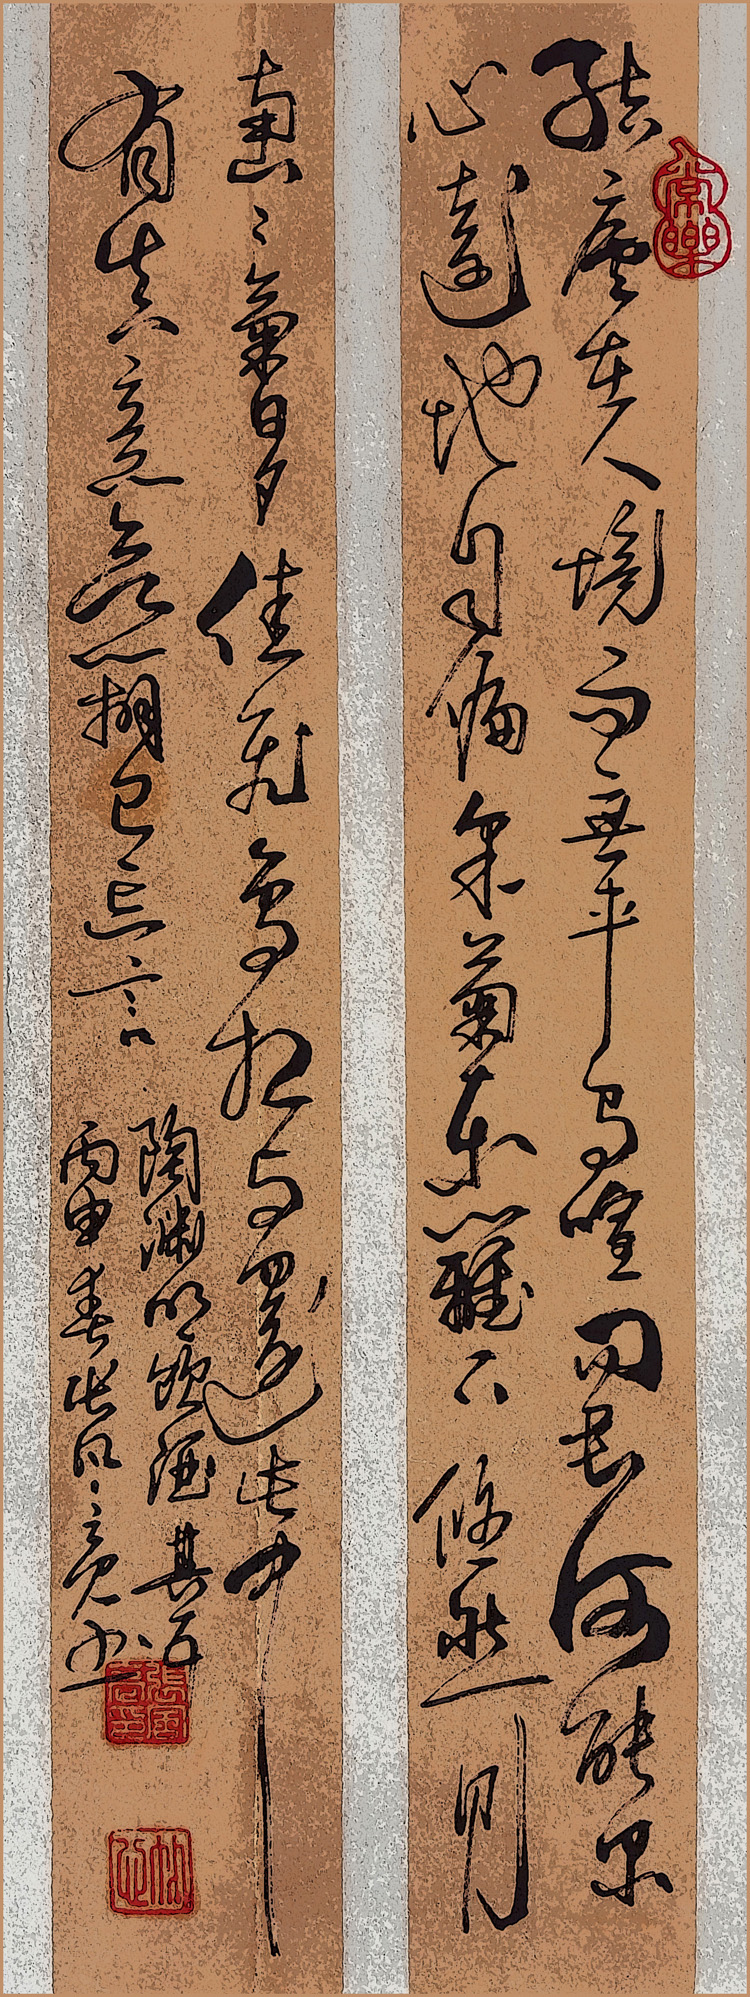 常樂
結廬在人境而無車馬喧問君何能尔
心遠地自偏采菊東籬下悠然見
南山〻氣日夕佳飛鳥相與還此中
有真意欲辨已忘言
陶渊明飲酒其五
丙申春張